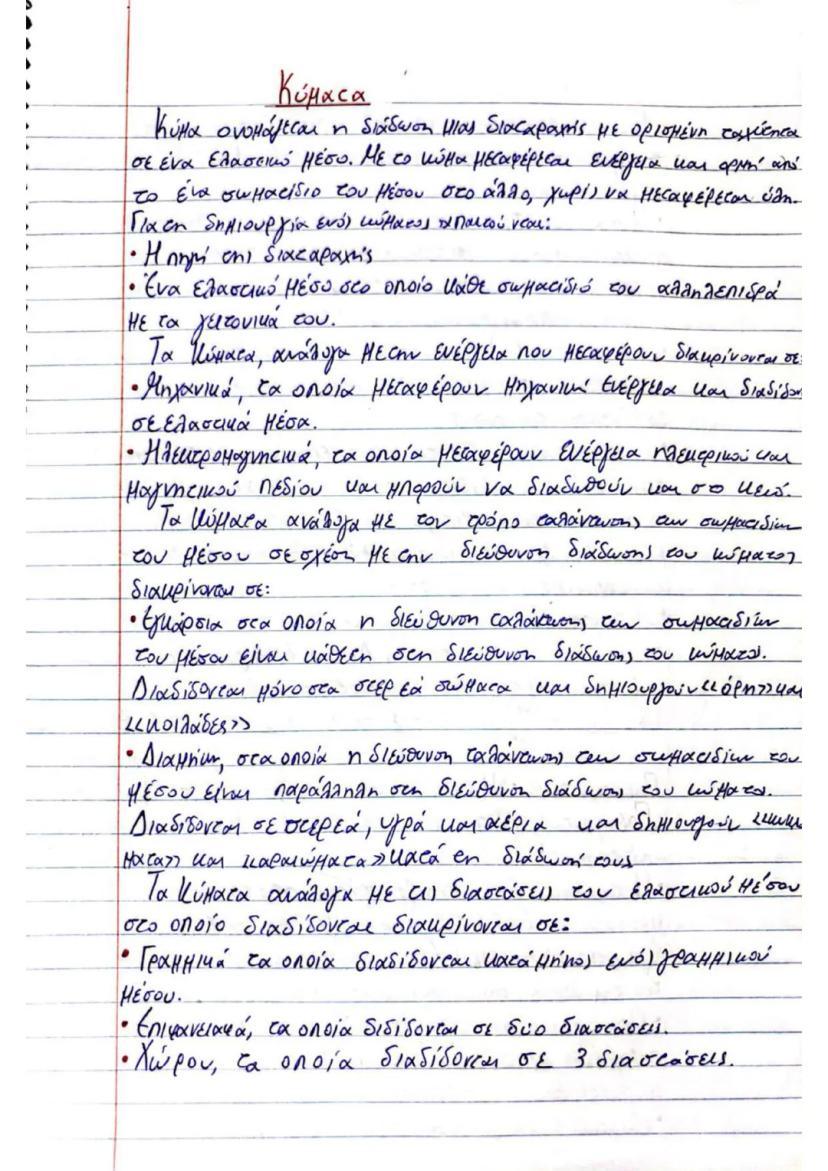 Κύματα
Κύμα ονομάζεται η διάδωση μιας διαταραχής με ορισμένη ταχύτητα
σε ένα ελαστικό μέσο. Με το κύμα μεταφέρεται ενέργεια και ορμή από
το ένα σωματίδιο του μέσου στο άλλο, χωρίς να μεταφέρεται ύλη.
Για τη δημιουργία ενός κύματος απαιτούνται:
• Η πηγή της διαταραχής
• Ένα ελαστικό μέσο στο οποίο κάθε σωματίδιό του αλληλεπιδρά
με τα γειτονικά του.
Τα κύματα, ανάλογα με την ενέργεια που μεταφέρουν διακρίνονται σε:
• Μηχανικά, τα οποία μεταφέρουν μηχανική ενέργεια και διαδίδον
σε ελαστικά μέσα.
• Ηλεκτρομαγνητικά, τα οποία μεταφέρουν ενέργεια ηλεκτρικού και
μαγνητικού πεδίου και μπορούν να διαδωθούν και στο κενό.
Τα κύματα ανάλογα με τον τρόπο ταλάντωσης των σωματιδίων
του μέσου σε σχέση με την διεύθυνση διάδωσης του κύματος
διακρίνονται σε:
• Εγκάρσια στα οποία η διεύθυνση ταλάντωσης των σωματιδίων
του μέσου είναι κάθετη στη διεύθυνση διάδωσης του κύματος.
Διαδίδονται μόνο στα στερεά σώματα και δημιουργούν <<όρη>> και
<<κοιλάδες>>
• Διαμήκη, στα οποία η διεύθυνση ταλάντωσης των σωματιδίων του
μέσου είναι παράλληλη στη διεύθυνση διάδωσης του κύματος.
Διαδίδονται σε στερεά, υγρά και αέρια και δημιουργούν
ματα>> και <<αραιώματα>> κατά τη διάδωσή τους
Τα κύματα ανάλογα με τις διαστάσεις του ελαστικού μέσου
στο οποίο διαδίδονται διακρίνονται σε:
• Γραμμικά τα οποία διαδίδονται κατά μήκος ενός γραμμικού
μέσου.
• Επιφανειακά, τα οποία διδίδονται σε δύο διαστάσεις.
• Χώρου, τα οποία διαδίδονται σε 3 διαστάσεις.